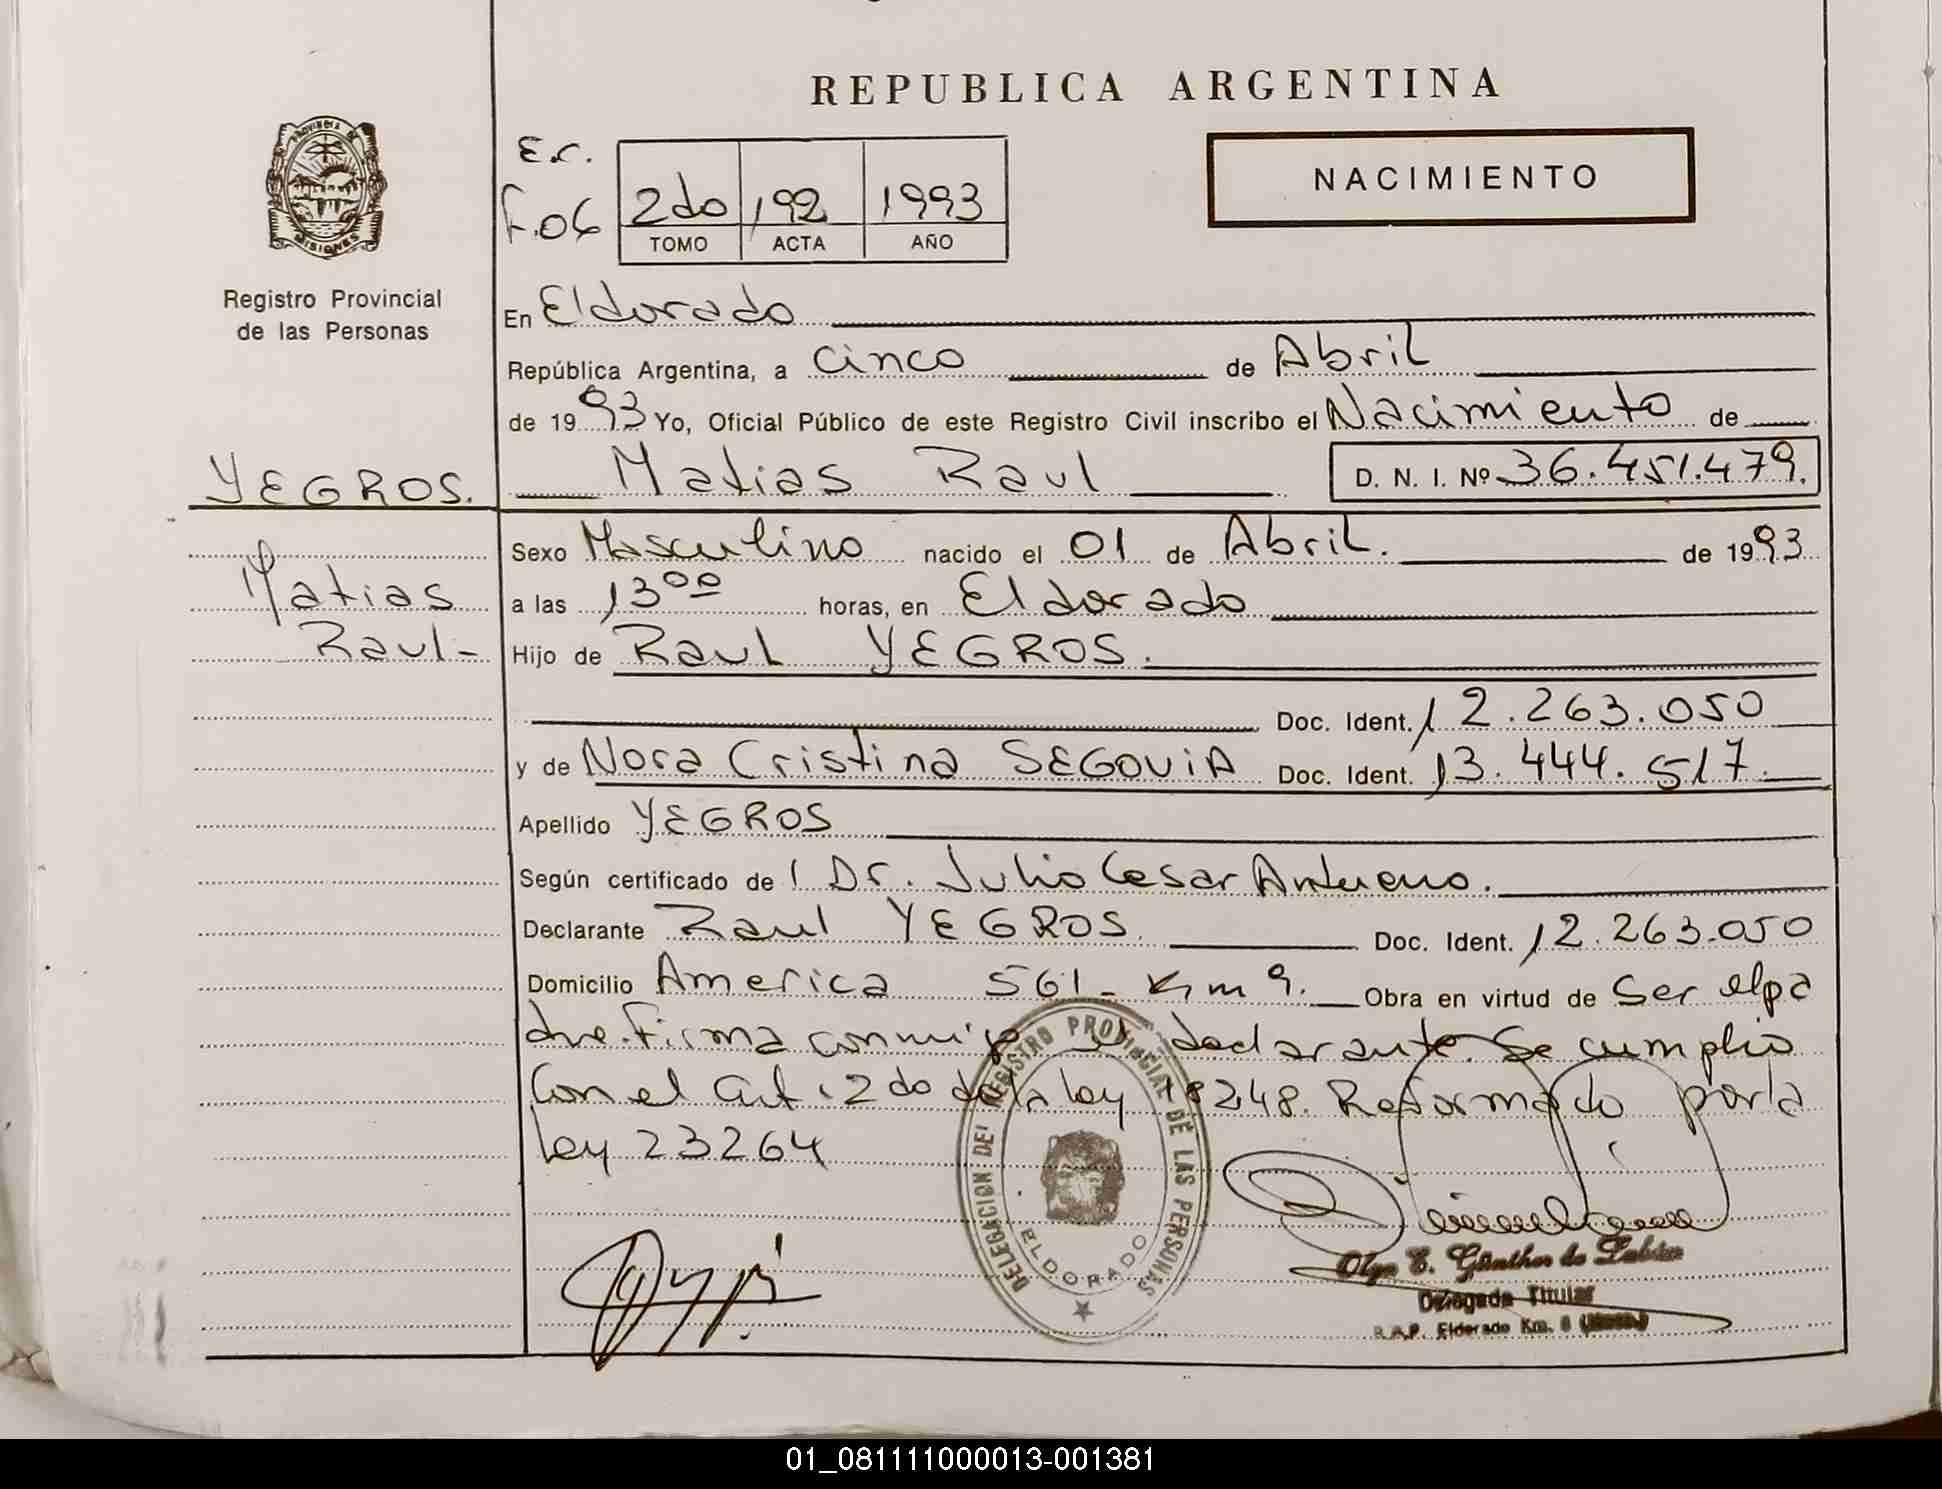 REPUBLICA ARGENTINA
PROVINCIA DE
MISIONES
Registro Provincial
de las Personas
E.C.
F.06
2do 192 1993
TOMO ACTA AÑO
NACIMIENTO
En Eldorado
República Argentina, a Cinco de Abril
de 1993 Yo, Oficial Público de este Registro Civil inscribo el Nacimiento de
YEGROS. Matias Raul D. N. I. Nº 36.451.479.
Sexo Masculino nacido el 01 de Abril. de 1993
Matias a las 13 00 horas, en Eldorado
Raul- Hijo de Raul YEGROS.
Doc. Ident. 12.263.050
y de Nora Cristina SEGOVIA Doc. Ident. 13.444.517.
Apellido YEGROS
Según certificado de l Dr. Julio Cesar
Declarante Raul YEGROS Doc. Ident. 12.263.050
Domicilio America 561- Km 9. Obra en virtud de Ser el pa
dre. Firma conmigo el declarante. Se cumplio
Con el Art. 2do de la ley 18248. Reformado por la
ley 23264
DELEGACION DEL REGISTRO PROVINCIAL DE LAS PERSONAS
ELDORADO
Olga E. Günther de
Delegada Titular
R.A.P. Eldorado Km.
01_081111000013-001381